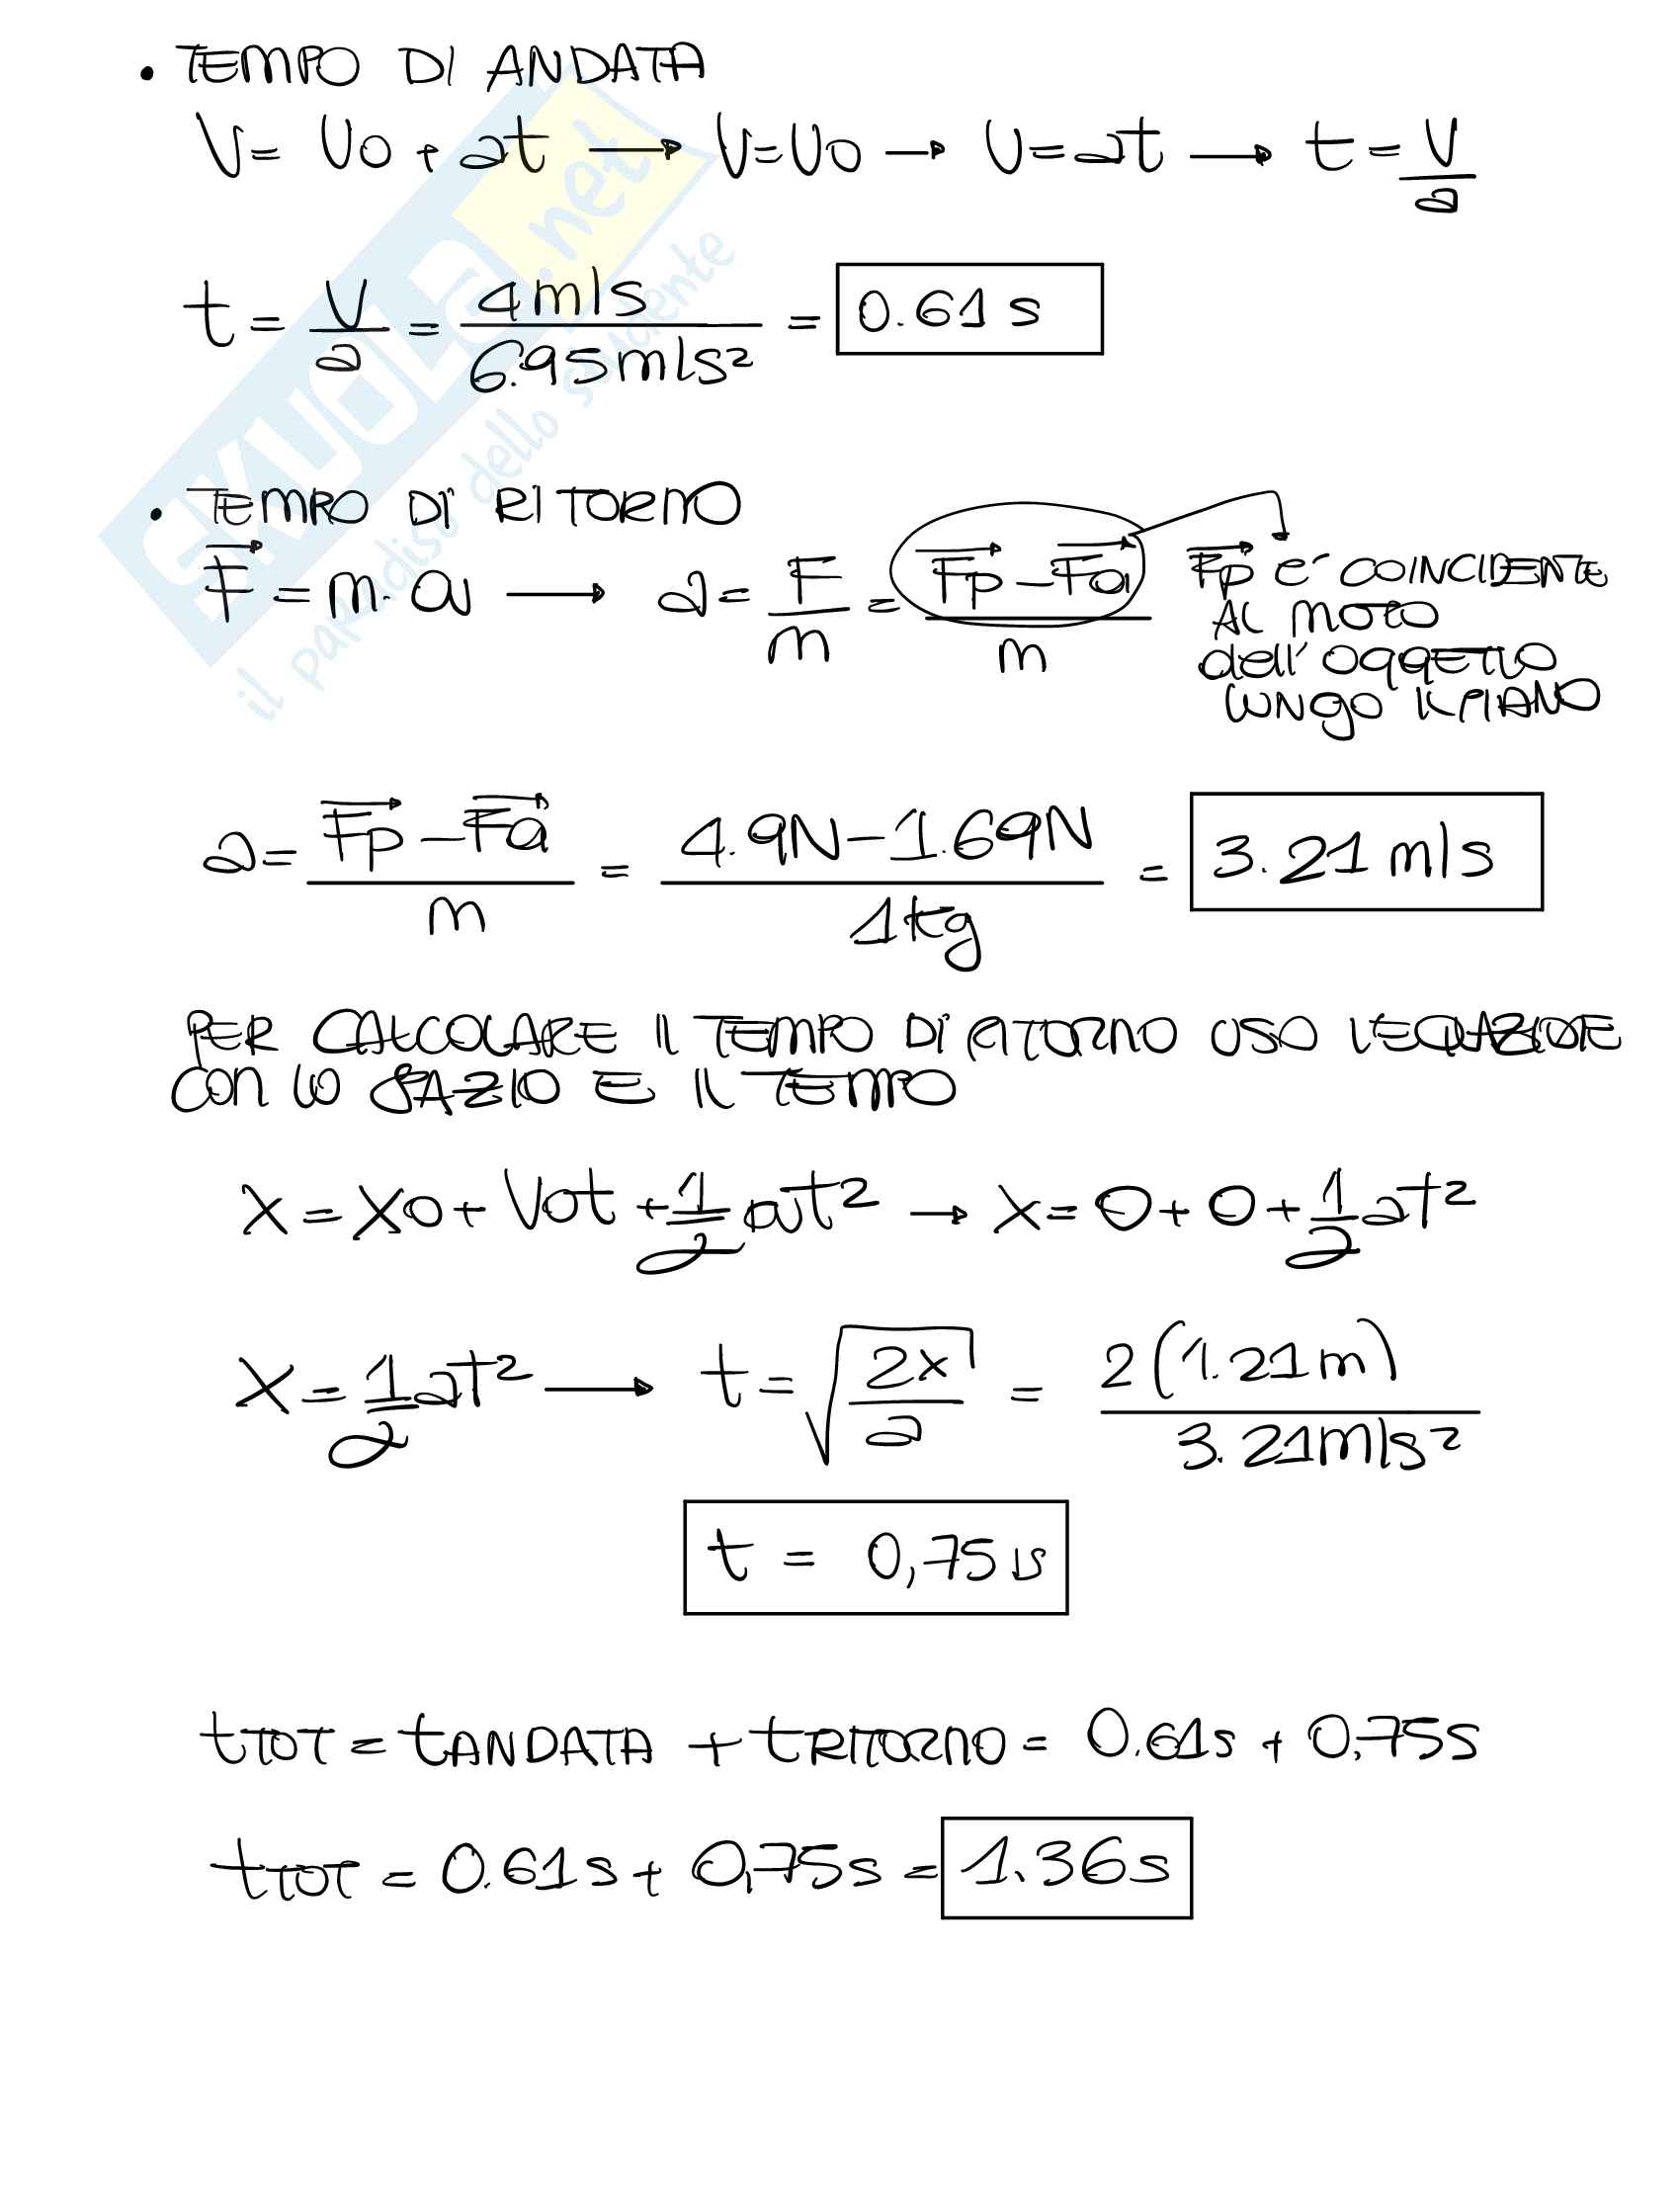 • TEMPO DI ANDATA
V = V0 + at → V=V0 → V=at → t = V/a
t = V/a = 4m/s / 6.95m/s² = 0.61 s
• TEMPO DI RITORNO
F = m·a → a = F/m = Fp - Fa / m
Fp e' COINCIDENTE
AL MOTO
dell'OGGETTO
LUNGO IL PIANO
a = Fp - Fa / m = 4.9N - 1.69N / 1kg = 3.21 m/s
PER CALCOLARE IL TEMPO DI RITORNO USO L'EQUAZIONE
CON LO SPAZIO E IL TEMPO
x = x0 + V0t + 1/2 at² → x = 0 + 0 + 1/2 at²
x = 1/2 at² → t = √2x/a = 2(1.21m) / 3.21m/s²
t = 0,75 s
tTOT = tANDATA + tRITORNO = 0.61s + 0,75s
tTOT = 0.61s + 0,75s = 1.36s
SKUOLA.net
il paradiso dello studente